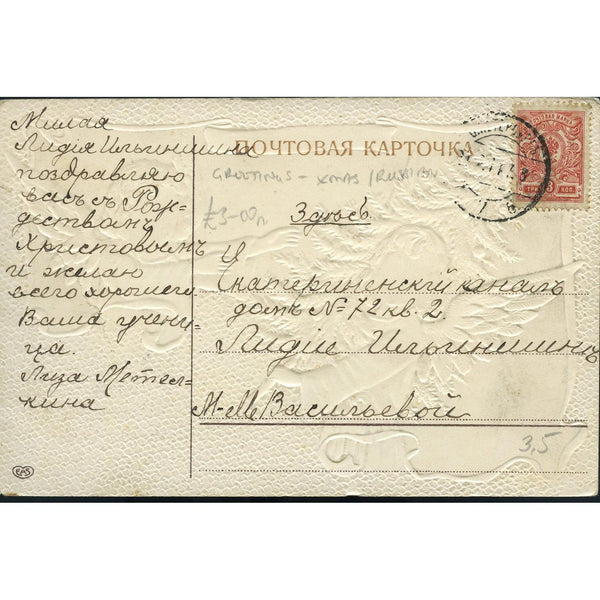 Милая
Лидія Ильинишна
поздравляю
васъ съ Рож-
дествомъ
Христовымъ
и желаю
всего хорошего
Ваша учени-
ца.
Лиза Метел-
кина
ПОЧТОВАЯ КАРТОЧКА
GREETINGS - XMAS / RUSSIAN
£3-00
Здѣсь.
Екатерининскій каналъ
домъ № 72 кв. 2.
Лидіи Ильинишнѣ
M-lle Васильевой
3,5
EAS
ТРИ 3 КОП.